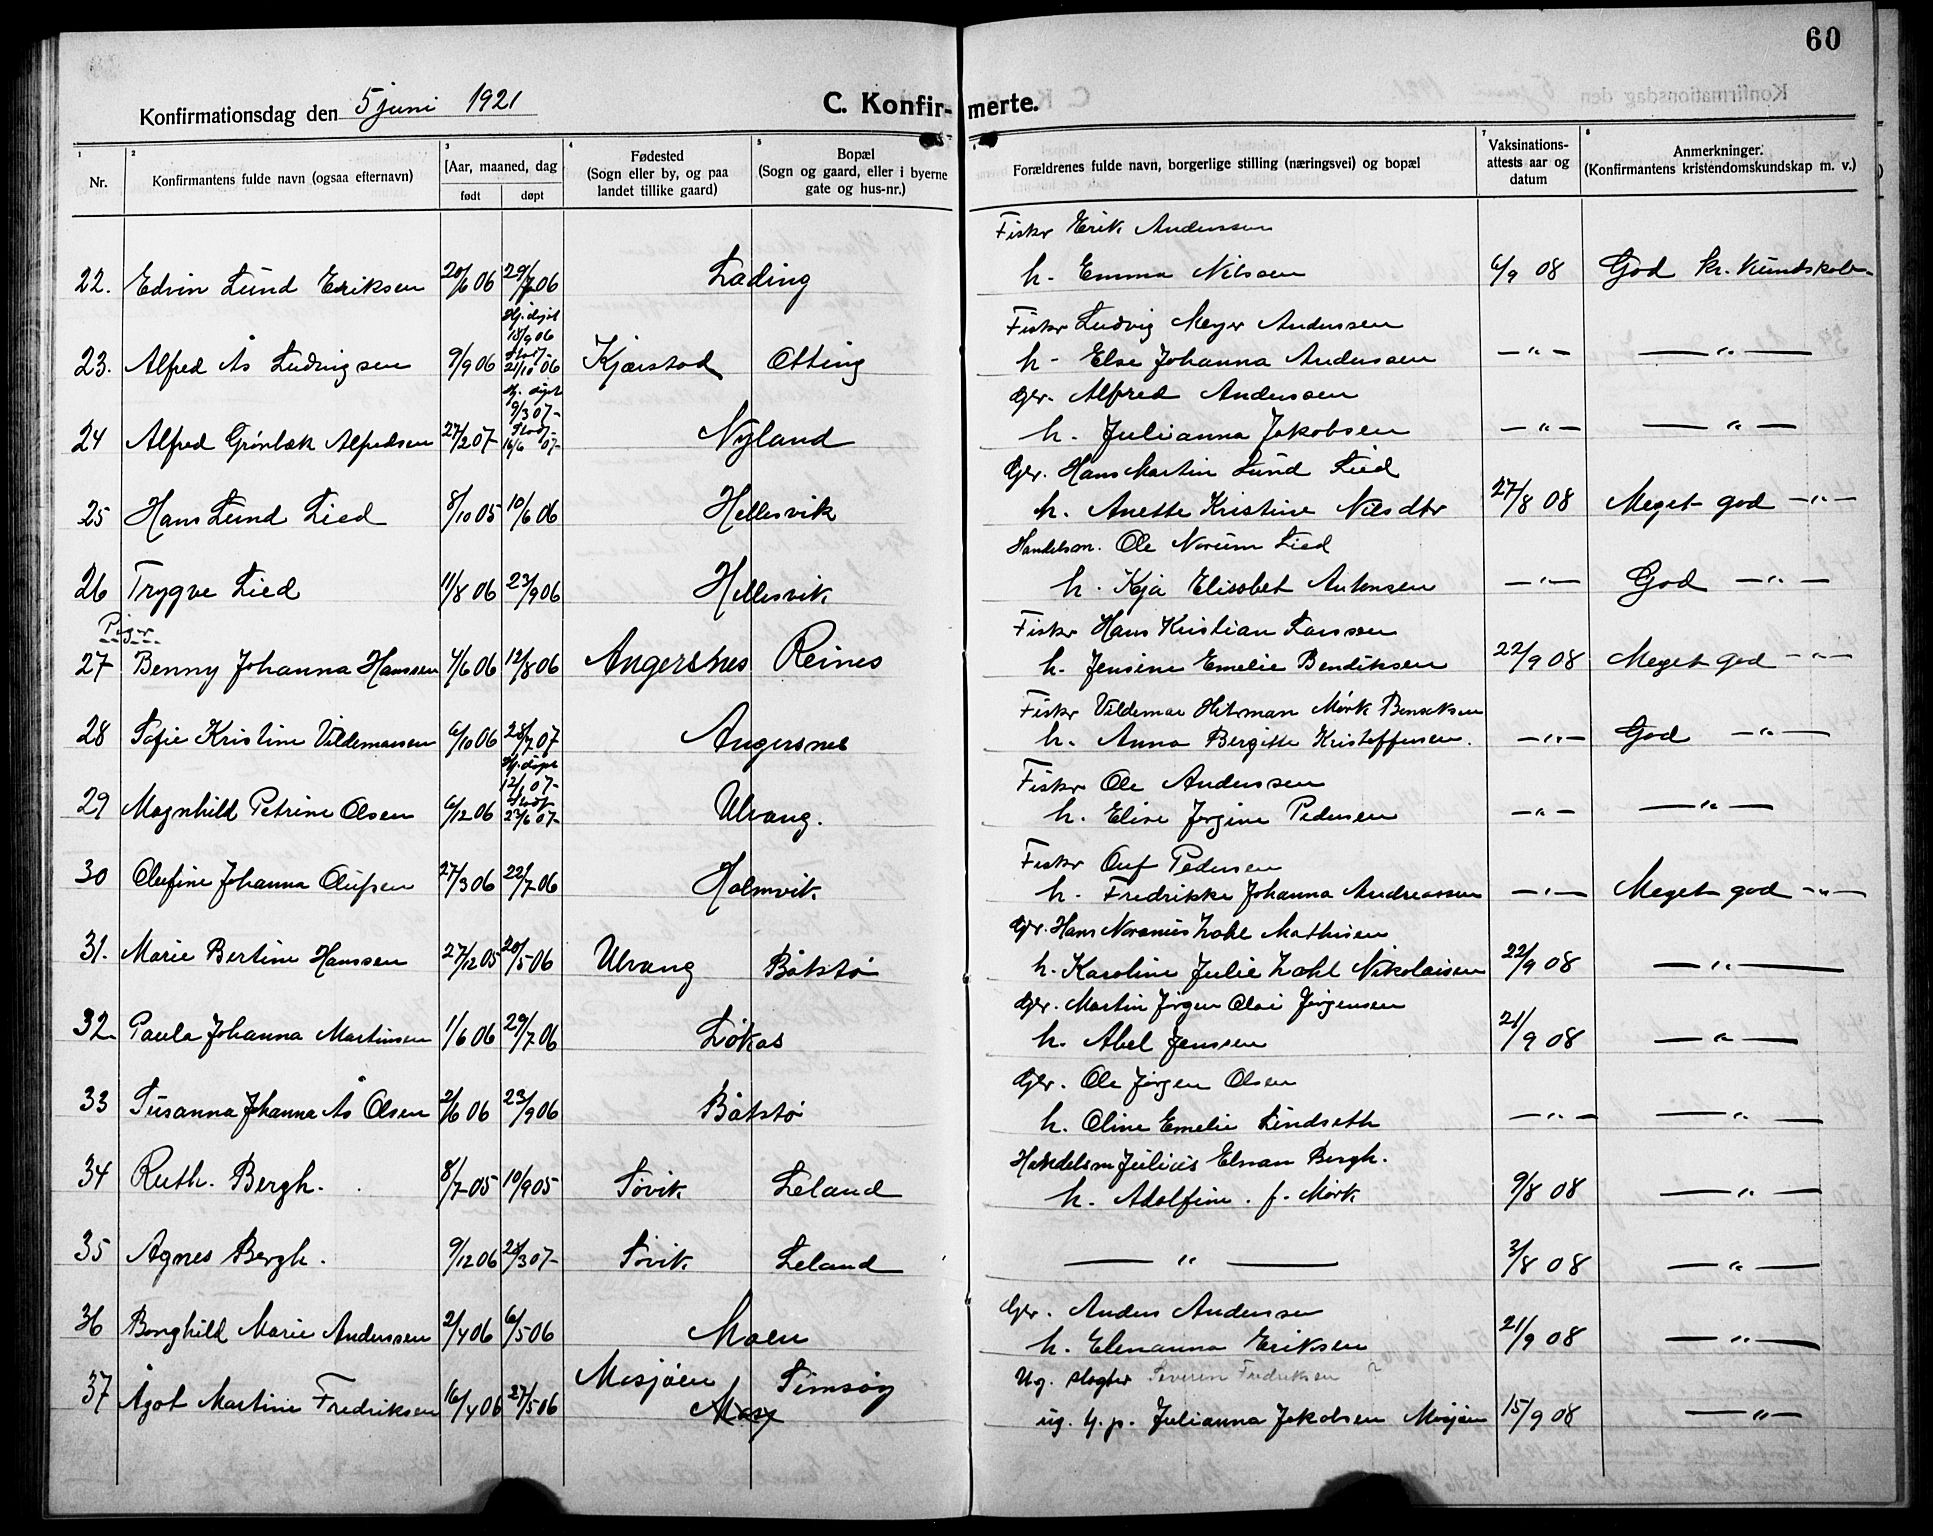 60
Konfirmationsdag den 5 juni 1921
C. Konfirmerte.
1 2 3 4 5 7 8
Nr. Konfirmantens fulde navn (ogsaa efternavn) Aar, maaned, dag født døpt Fødested (Sogn eller by, og paa landet tillike gaard) Bopæl (Sogn og gaard, eller i byerne gate og hus-nr.) Forældrenes fulde navn, borgerlige stilling (næringsvei) og bopæl Vaksinations-attests aar og datum Anmerkninger. (Konfirmantens kristendomskundskap m. v.)
Fiskr Erik Anderssen
22. Edvin Lund Eriksen 20/6 06 29/7 06 Lading h. Emma Nilsen 6/9 08 God kr. kundskab
Hj. døpt 18/9 06
Fiskr Ludvig Meyer Anderssen
23. Alfred Ås Ludvigsen 9/9 06 Stadf. 21/10 06 Kjærstad Otting h. Else Johanna Anderssen -"- -"-
Hj. døpt 9/3 07
Gbr. Alfred Anderssen
24 Alfred Grönbæk Alfredsen 27/2 07 Stadf. 16/6 07 Nyland h. Julianna Jakobsen -"- -"-
Gbr. Hans Martin Lund Lied
25 Hans Lund Lied 8/10 05 10/6 06 Hellesvik h. Anette Kristine Nilsdtr 27/8 08 Meget god -"-
Handelsm. Ole Norum Lied
26 Trygve Lied 11/8 06 23/9 06 Hellesvik h. Kja Elisabet Antonsen -"- God -"-
Piger
Fiskr Hans Kristian Larssen
27 Benny Johanna Hanssen 4/6 06 12/8 06 Angersnes Reines h. Jensine Emelie Bendiksen 22/9 08 Meget god -"-
Fiskr Valdemar Hitsman Mørk Benseksen
28 Sofie Kristine Valdemarsen 6/10 06 28/7 07 Angersnes h. Anna Bergitte Kristoffersen. -"- God -"-
Hj. døpt 12/1 07
Fiskr Ole Anderssen
29 Magnhild Petrine Olsen 6/12 06 Stadf. 23/6 07 Ulvang. h. Elise Jørgine Pedersen -"- -"-
Fiskr Oluf Pedersen
30 Olufine Johanna Olufsen 27/3 06 22/7 06 Holmvik h. Fredrikke Johanna Andreassen -"- Meget god -"-
Gbr. Hans Norenius Zahl Mathisen
31. Marie Bertine Hanssen 27/12 05 20/5 06 Ulvang Båtstø h. Karoline Julie Zahl Nikolaisen 22/9 08 -"-
Gbr. Martin Jørgen Olai Jørgensen
32 Paula Johanna Martinsen 1/6 06 29/7 06 Løkås h. Abel Jenssen 21/9 08 -"-
Gbr. Ole Jørgen Olsen
33 Susanna Johanna Ås Olsen 2/6 06 23/9 06 Båtstø h. Oline Emelie Lindseth -"- -"-
Handelsm Julius Elnan Bergh.
34 Ruth. Bergh. 8/7 05 10/9 05 Søvik Leland h. Adolfine. f. Mørk 9/8 08 -"-
35 Agnes Bergh. 9/12 06 24/3 07 Søvik Leland -"- 3/8 08 -"-
Gbr. Anders Anderssen
36 Borghild Marie Anderssen 2/4 06 6/5 06 Moen h. Elenanna Eriksen 21/9 08 -"-
Ug. slagter Severin Fredriksen ?
37 Ågot Martine Fredriksen 16/4 06 27/5 06 Mosjøen Simsøy ug. t.p. Julianna Jakobsen Mosjøen 15/9 08 -"-